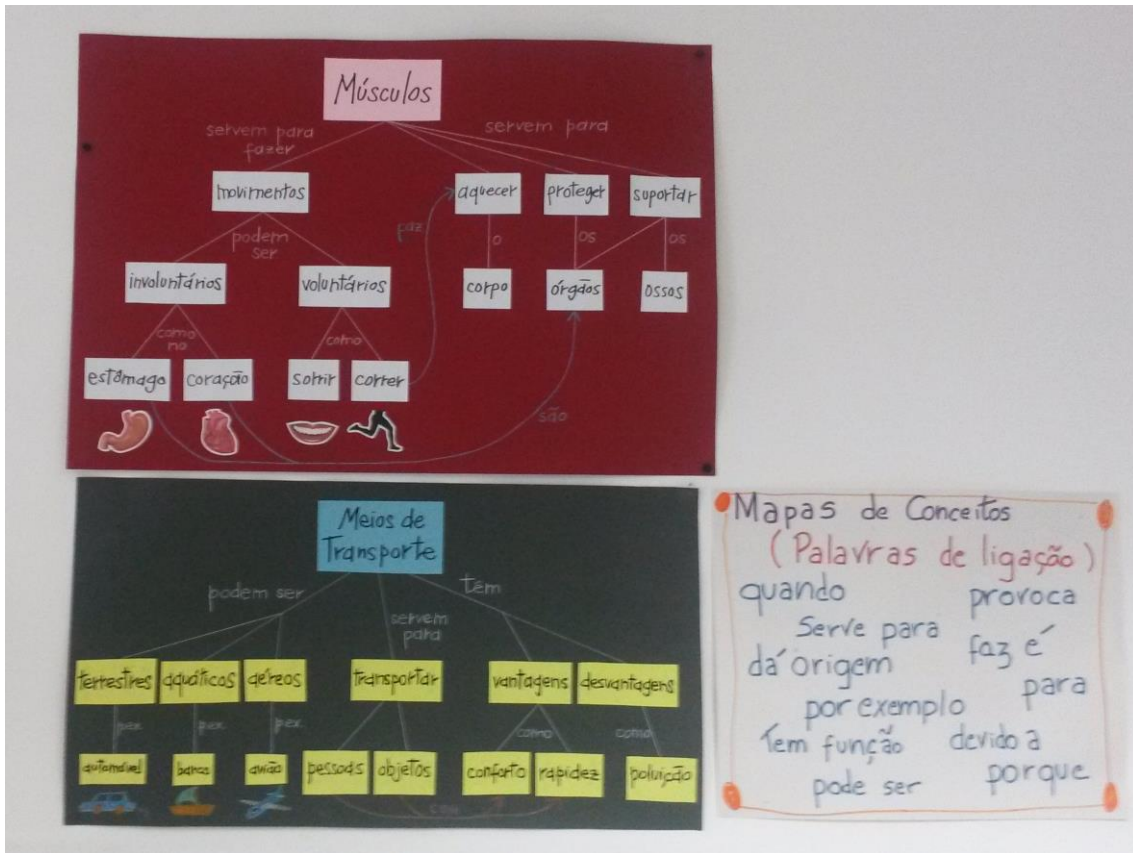 Músculos
servem para
fazer
servem para
movimentos
aquecer
proteger
suportar
podem
ser
faz
o
os
os
involuntários
voluntários
corpo
órgãos
ossos
como
no
como
estômago
coração
sorrir
correr
são
Meios de
Transporte
podem ser
servem
para
têm
terrestres
aquáticos
aéreos
transportar
vantagens
desvantagens
p.ex.
p.ex.
p.ex.
como
como
automóvel
barco
avião
pessoas
objetos
conforto
rapidez
poluição
com
Mapas de Conceitos
(Palavras de ligação)
quando
provoca
Serve para
faz é
dá origem
para
por exemplo
Tem função
devido a
pode ser
porque